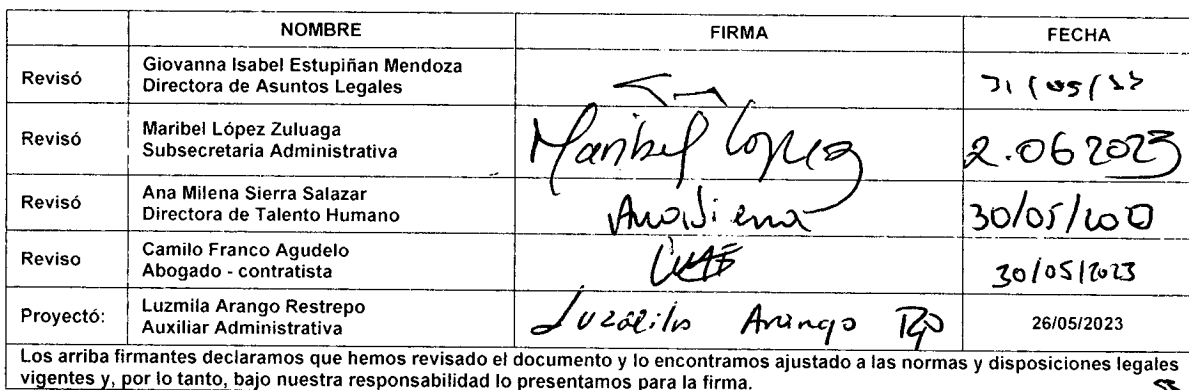 NOMBRE FIRMA FECHA
Revisó Giovanna Isabel Estupiñan Mendoza
Directora de Asuntos Legales
Revisó Maribel López Zuluaga
Subsecretaria Administrativa Maribel López 2.06 2023
Revisó Ana Milena Sierra Salazar
Directora de Talento Humano Ana Sierra 30/05/
Reviso Camilo Franco Agudelo
Abogado - contratista 30/05/2023
Proyectó: Luzmila Arango Restrepo
Auxiliar Administrativa Arango 26/05/2023
Los arriba firmantes declaramos que hemos revisado el documento y lo encontramos ajustado a las normas y disposiciones legales
vigentes y, por lo tanto, bajo nuestra responsabilidad lo presentamos para la firma.